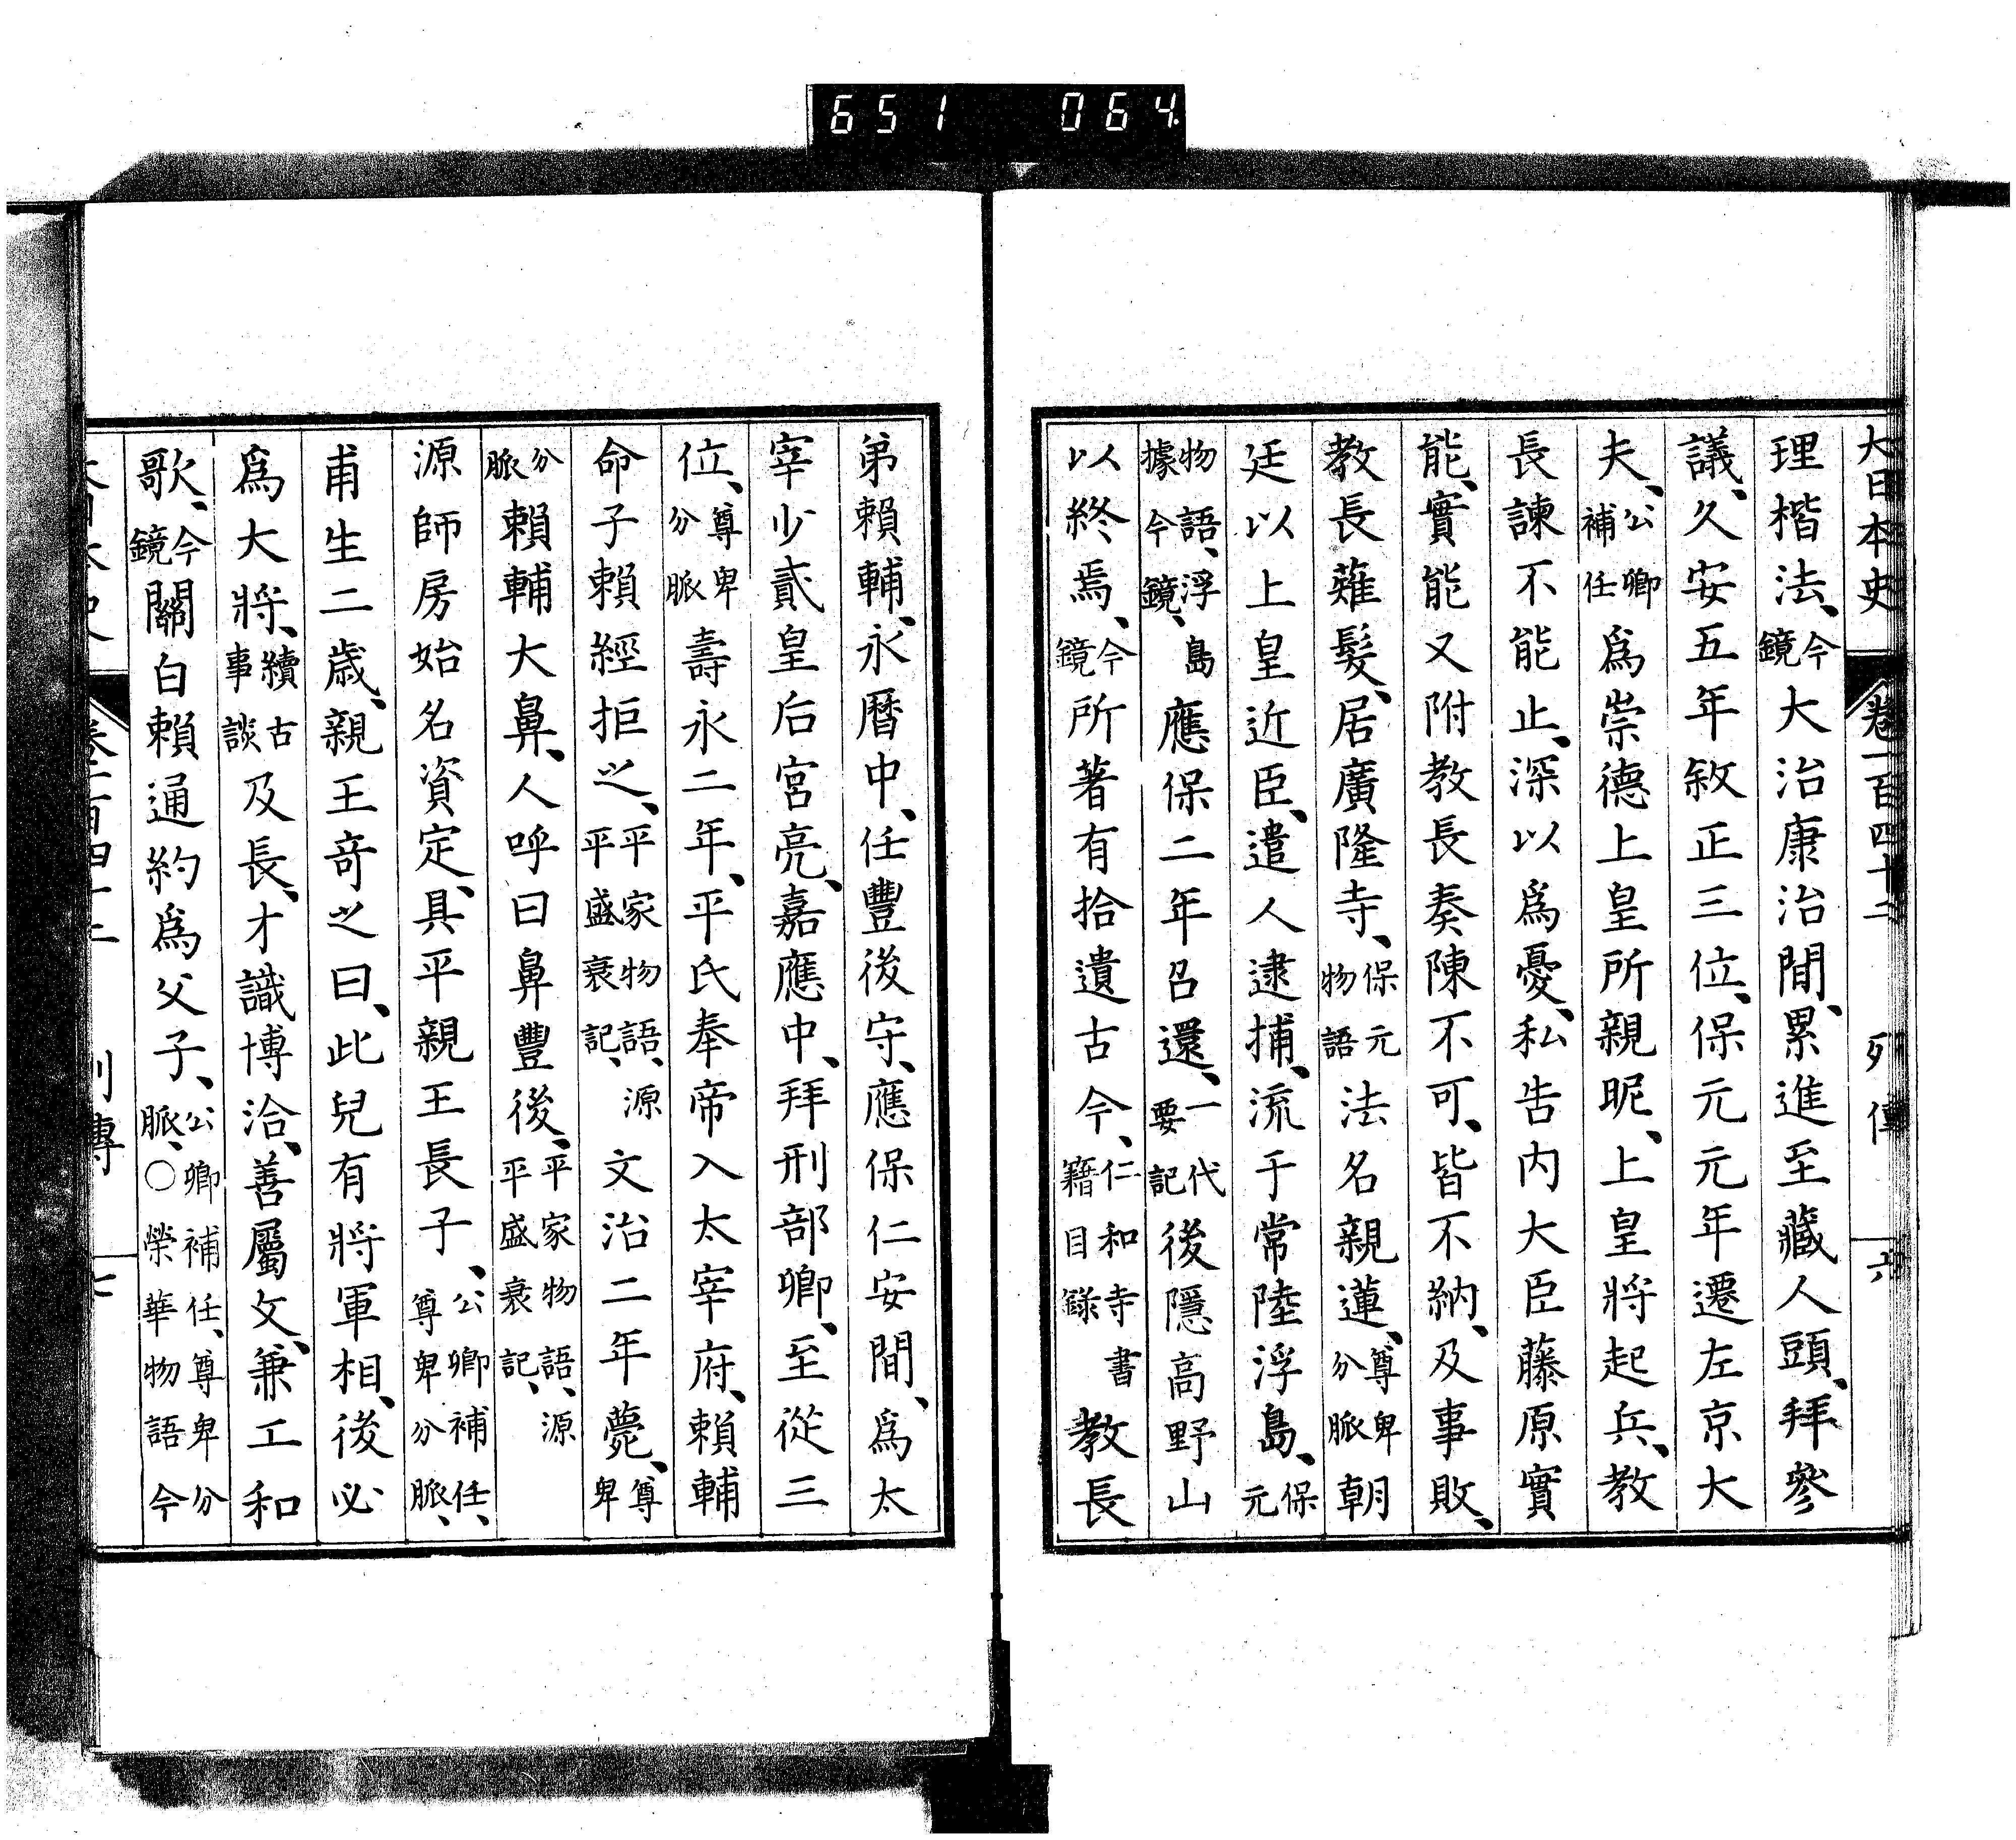 651 064
大日本史 卷一百四十二 列傳 六
理楷法、今鏡大治康治間、累進至藏人頭、拜參
議、久安五年敘正三位、保元元年遷左京大
夫、公卿補任爲崇德上皇所親昵、上皇將起兵、教
長諫不能止、深以爲憂、私告内大臣藤原實
能、實能又附教長奏陳不可、皆不納、及事敗、
教長薙髮、居廣隆寺、保元物語法名親蓮、尊卑分脈朝
廷以上皇近臣、遣人逮捕、流于常陸浮島、保元
物語、浮島據今鏡、應保二年召還、一代要記後隱高野山
以終焉、今鏡所著有拾遺古今、仁和寺書籍目錄教長
弟賴輔、永曆中、任豐後守、應保仁安間、爲太
宰少貳皇后宮亮、嘉應中、拜刑部卿、至從三
位、尊卑分脈壽永二年、平氏奉帝入太宰府、賴輔
命子賴經拒之、平家物語、源平盛衰記、文治二年薨、尊卑
分脈賴輔大鼻、人呼曰鼻豐後、平家物語、源平盛衰記、
源師房始名資定、具平親王長子、公卿補任、尊卑分脈、
甫生二歲、親王奇之曰、此兒有將軍相、後必
爲大將、續古事談及長、才識博洽、善屬文、兼工和
歌、今鏡關白賴通約爲父子、公卿補任、尊卑分脈、○榮華物語今
卷一百四十二 列傳 七